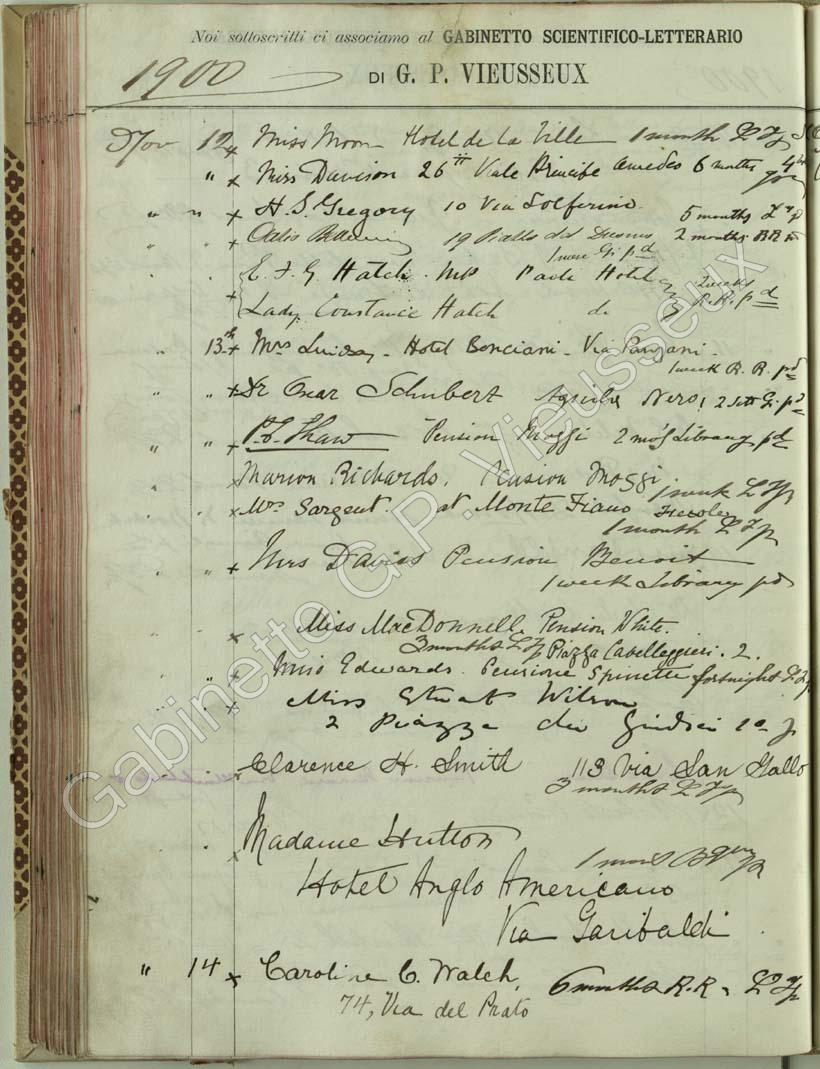 Noi sottoscritti ci associamo al GABINETTO SCIENTIFICO-LETTERARIO
1900 DI G. P. VIEUSSEUX
Nov 12 x Miss Moon Hotel de la Ville 1 month
" x Miss Davison 26 Viale Principe Amedeo 6 months
" " x H. S. Gregory 10 Via Solferino 5 months
" x 19 2 months
E. F. G. Hatch. MP Hotel 2 weeks
x Lady Constance Hatch do R.R. pd
" 13th x Mrs Lindsay - Hotel Bonciani - Via Panzani -
1 week R. R. pd
" " x Dr Oscar Schubert Aquila Nera
" " x Shaw Pension Moggi 2 mos Library pd
x Marion Richards. Pension Moggi.
1 week
x Mrs Sargent. at Monte Fiano Fiesole
1 month
" " x Mrs Davies Pension Benoit
1 week Library pd
x Miss MacDonnell. Pension White.
3 months Piazza Cavalleggieri. 2.
" x Miss Edwards. Pensione Spinetti fortnight
x Miss Stuart Wilson
2 Piazza dei Giudici
x Clarence H. Smith 113 Via San Gallo
3 months
x Madame Hutton
1
Hotel Anglo Americano
Via Garibaldi
" 14 x Caroline C. Walch, 6 months R.R.
74, Via del Prato
Gabinetto G.P. Vieusseux